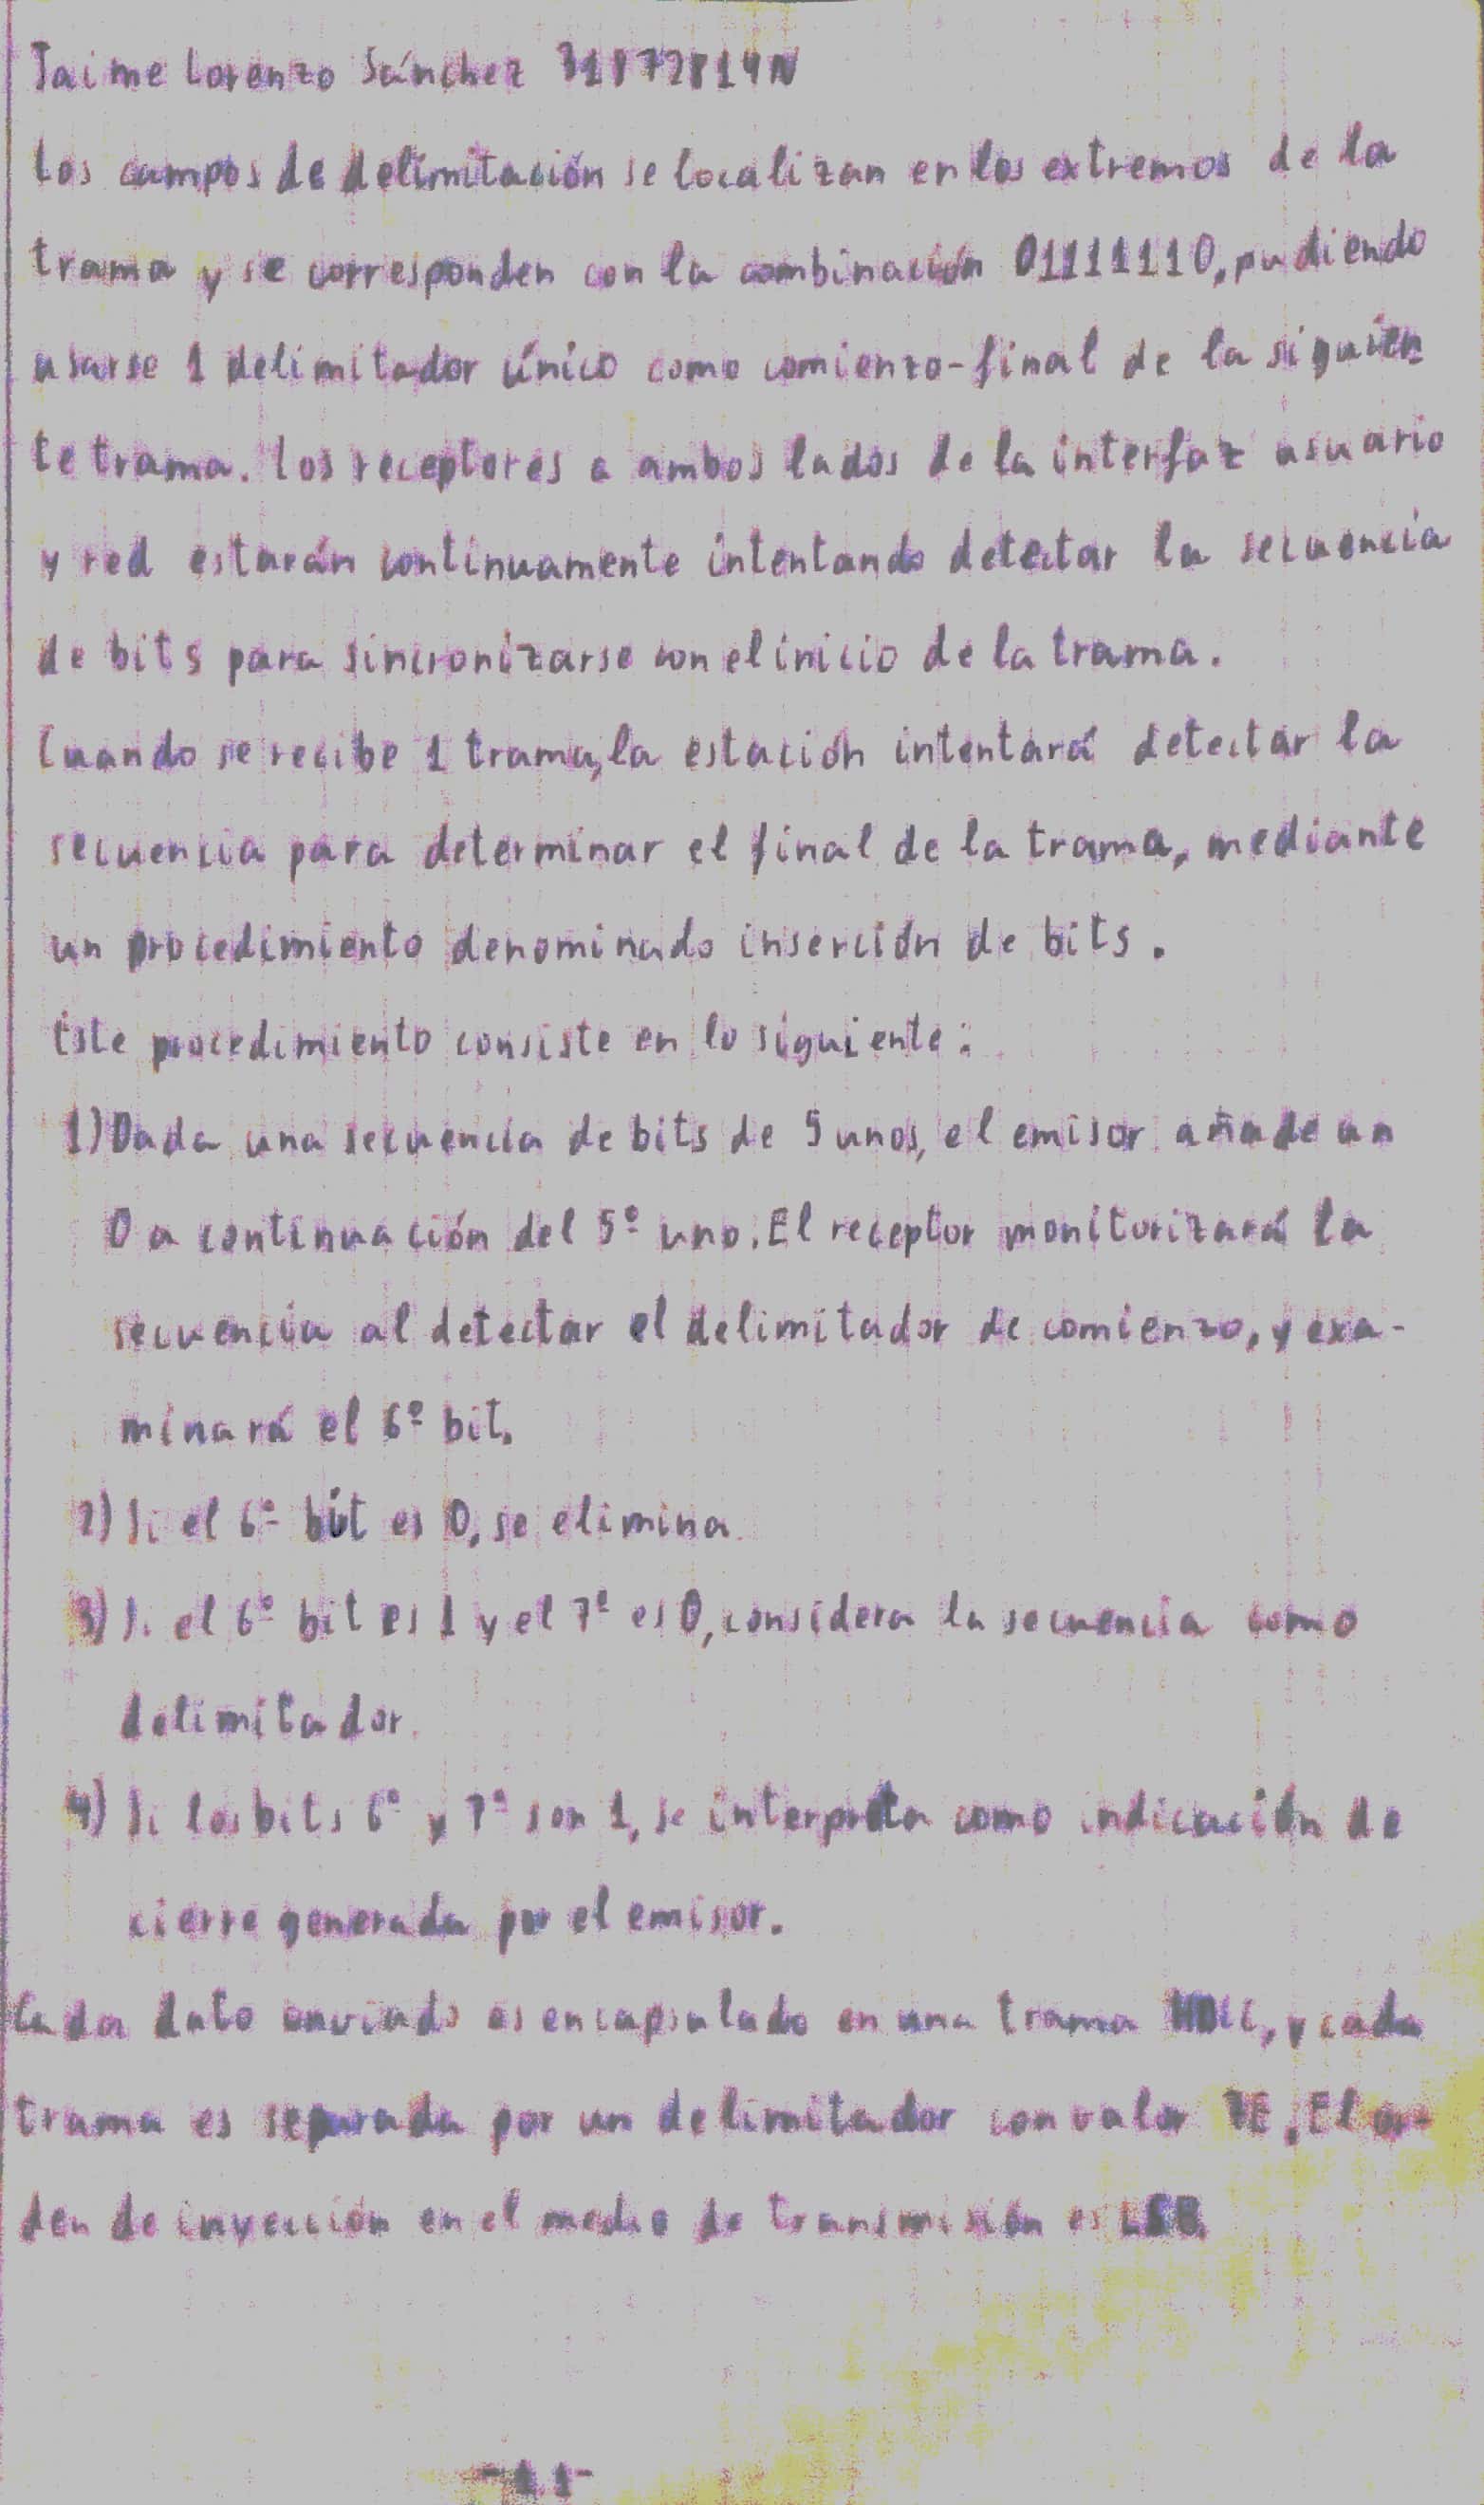 Jaime Lorenzo Sánchez 31872814N
Los campos de delimitación se localizan en los extremos de la
trama y se corresponden con la combinación 01111110, pudiendo
usarse 1 delimitador único como comienzo-final de la siguien
te trama. Los receptores a ambos lados de la interfaz usuario
y red estarán continuamente intentando detectar la secuencia
de bits para sincronizarse con el inicio de la trama.
Cuando se recibe 1 trama, la estación intentará detectar la
secuencia para determinar el final de la trama, mediante
un procedimiento denominado inserción de bits.
Este procedimiento consiste en lo siguiente:
1) Dada una secuencia de bits de 5 unos, el emisor añade un
0 a continuación del 5º uno. El receptor monitorizará la
secuencia al detectar el delimitador de comienzo, y exa-
minará el 6º bit.
2) Si el 6º bit es 0, se elimina.
3) Si el 6º bit es 1 y el 7º es 0, considera la secuencia como
delimitador.
4) Si los bits 6º y 7º son 1, se interpreta como indicación de
cierre generada por el emisor.
Cada dato enviado es encapsulado en una trama HDLC, y cada
trama es separada por un delimitador con valor 7E. El or-
den de inyección en el medio de transmisión es LSB.